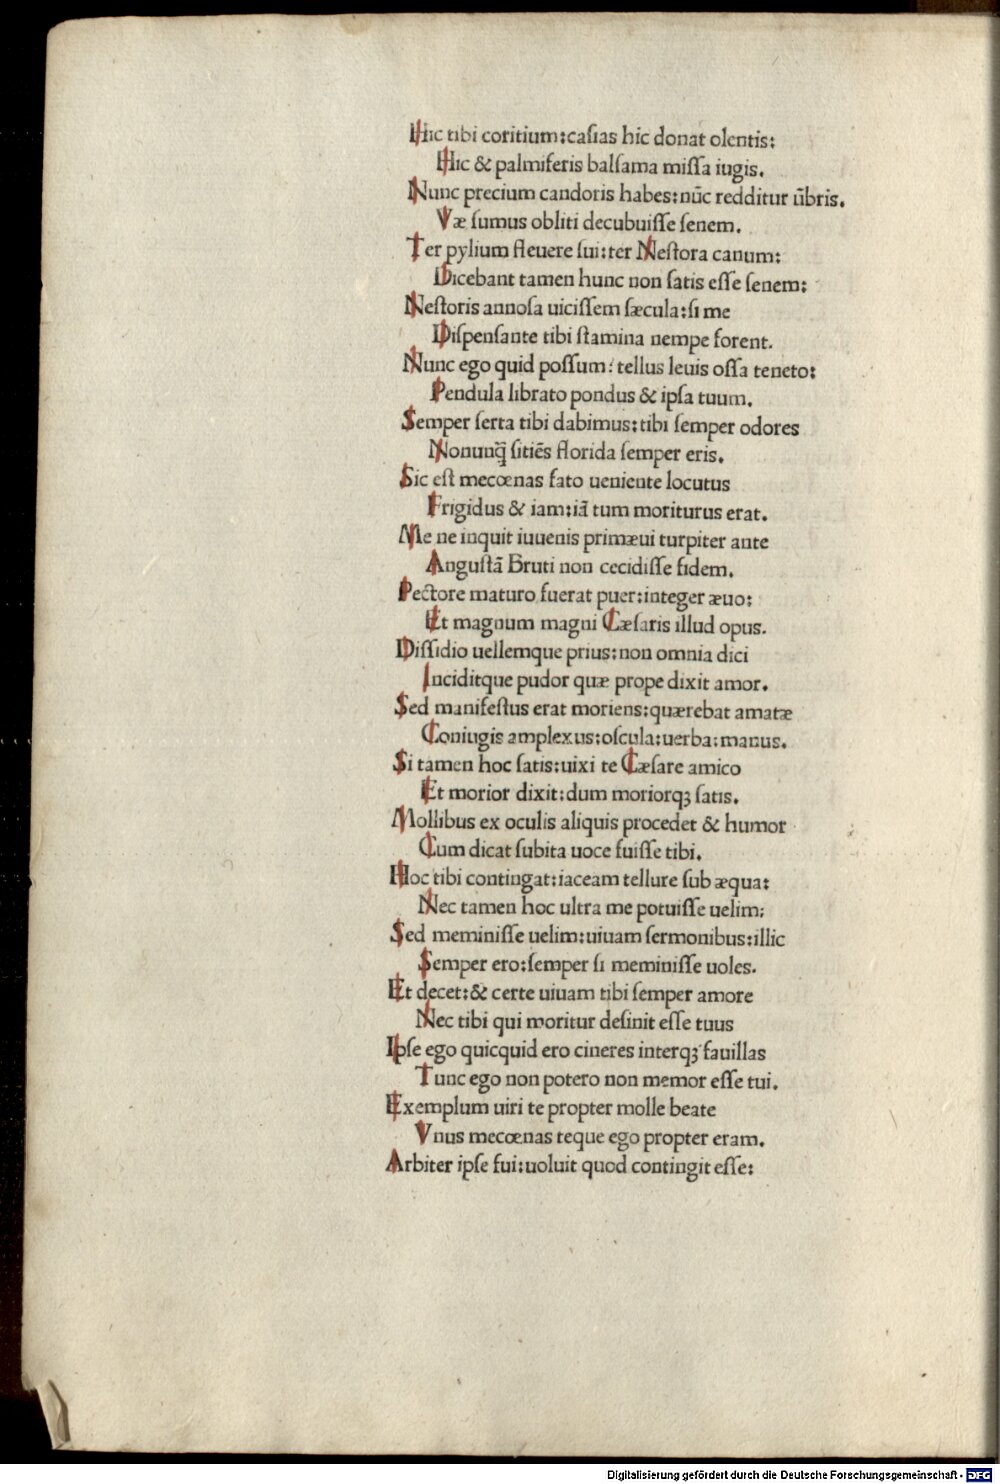 Hic tibi coritium:casias hic donat olentis:
Hic & palmiferis balsama missa iugis.
Nunc precium candoris habes:nūc redditur ūbris.
Væ sumus obliti decubuisse senem.
Ter pylium fleuere sui:ter Nestora canum:
Dicebant tamen hunc non satis esse senem:
Nestoris annosa uicissem sæcula:si me
Dispensante tibi stamina nempe forent.
Nunc ego quid possum: tellus leuis ossa teneto:
Pendula librato pondus & ipsa tuum.
Semper serta tibi dabimus:tibi semper odores
Nonunq̄ sitiēs florida semper eris.
Sic est mecœnas fato ueniente locutus
Frigidus & iam:iā tum moriturus erat.
Me ne inquit iuuenis primæui turpiter ante
Angustā Bruti non cecidisse fidem.
Pectore maturo fuerat puer:integer æuo:
Et magnum magni Cæsaris illud opus.
Dissidio uellemque prius:non omnia dici
Inciditque pudor quæ prope dixit amor.
Sed manifestus erat moriens:quærebat amatæ
Coniugis amplexus:oscula:uerba:manus.
Si tamen hoc satis:uixi te Cæsare amico
Et morior dixit:dum moriorqꝫ satis.
Mollibus ex oculis aliquis procedet & humor
Cum dicat subita uoce fuisse tibi.
Hoc tibi contingat:iaceam tellure sub æqua:
Nec tamen hoc ultra me potuisse uelim:
Sed meminisse uelim:uiuam sermonibus:illic
Semper ero:semper si meminisse uoles.
Et decet:& certe uiuam tibi semper amore
Nec tibi qui moritur desinit esse tuus
Ipse ego quicquid ero cineres interqꝫ fauillas
Tunc ego non potero non memor esse tui.
Exemplum uiri te propter molle beate
Vnus mecœnas teque ego propter eram.
Arbiter ipse fui:uoluit quod contingit esse:
Digitalisierung gefördert durch die Deutsche Forschungsgemeinschaft - DFG